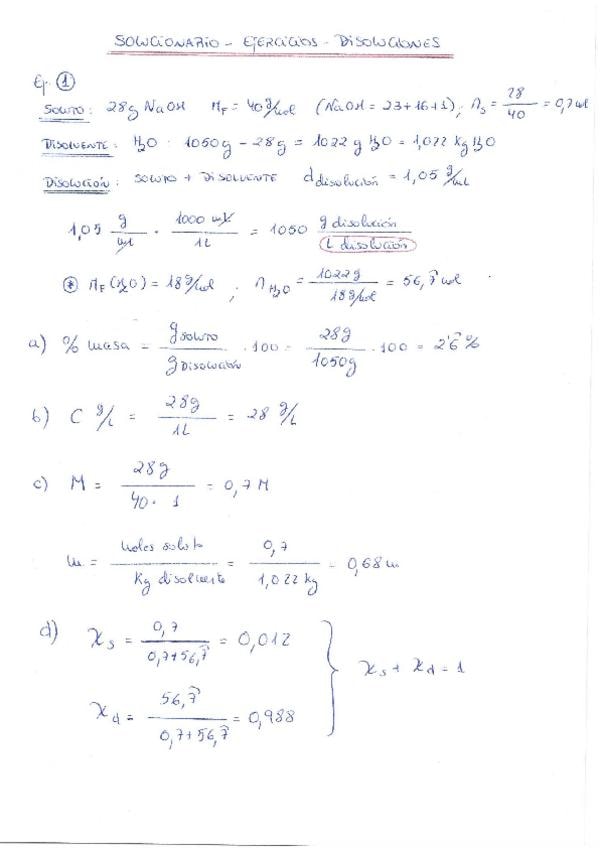 SOLUCIONARIO - EJERCICIOS - DISOLUCIONES
Ej. 1
SOLUTO: 28g NaOH MF = 40 g/mol (NaOH = 23+16+1); ns = 28/40 = 0,7 mol
DISOLVENTE: H2O : 1050g - 28g = 1022 g H2O = 1,022 Kg H2O
DISOLUCIÓN: SOLUTO + DISOLVENTE d disolución = 1,05 g/mL
1,05 g/mL · 1000 mL/1L = 1050 g disolución/L disolución
* MF (H2O) = 18 g/mol ; nH2O = 1022g/18 g/mol = 56,7̂ mol
a) % masa = g SOLUTO/g DISOLUCIÓN · 100 = 28g/1050g · 100 = 2'6̂ %
b) C g/L = 28g/1L = 28 g/L
c) M = 28g/40 · 1 = 0,7 M
m = moles soluto/Kg disolvente = 0,7/1,022 kg = 0,68 m
d) χs = 0,7/0,7+56,7̂ = 0,012
χs + χd = 1
χd = 56,7̂/0,7+56,7̂ = 0,988